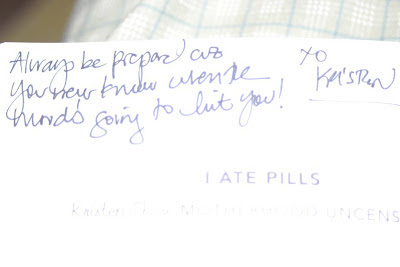 Always be prepared cuz
you never know when the
mood's going to hit you!
XO
Kristen
I ATE PILLS
Kristen UNCENS